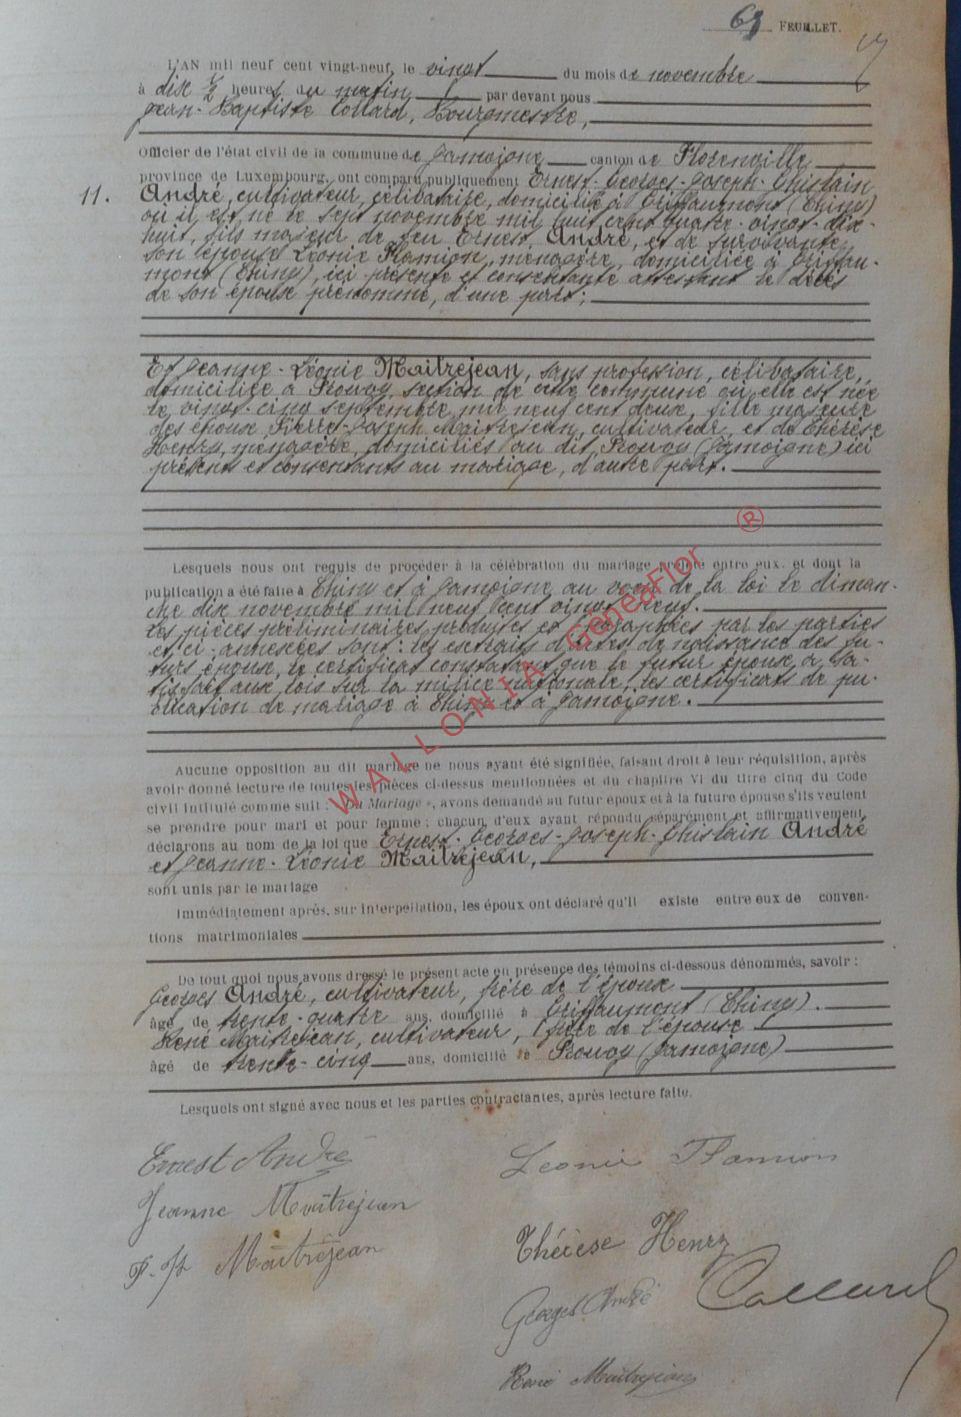 69 FEUILLET.
L'AN mil neuf cent vingt-neuf, le vingt du mois de novembre
à dix ½ heures du matin par devant nous
Jean-Baptiste Collard, Bourgmestre,
Officier de l'état civil de la commune de Jamoigne canton de Florenville
province de Luxembourg, ont comparu publiquement Ernest-Georges-Joseph-Ghislain
11. André, cultivateur, célibataire, domicilié à Griffaumont (Chiny)
où il est né le sept novembre mil huit cent quatre-vingt-dix-
huit, fils majeur de feu Ernest André, et de survivante
son épouse Léonie Flamion, ménagère, domiciliée à Griffau-
mont (Chiny), ici présente et consentante attestant le décès
de son époux prénommé, d'une part;
Et Jeanne-Léonie Maitrejean, sans profession, célibataire,
domiciliée à Prouvy, section de cette commune où elle est née
le vingt-cinq septembre mil neuf cent deux, fille majeure
des époux Pierre-Joseph Maitrejean, cultivateur, et de Thérèse
Henry, ménagère, domiciliés au dit Prouvy (Jamoigne) ici
présents et consentants au mariage, d'autre part.
Lesquels nous ont requis de procéder à la célébration du mariage projeté entre eux, et dont la
publication a été faite à Chiny et à Jamoigne au vœu de la loi le diman-
che dix novembre mil neuf cent vingt-neuf.
Les pièces préliminaires produites et paraphées par les parties
et ci-annexées sont: les extraits d'actes de naissance des fu-
turs époux, le certificat constatant que le futur époux a sa-
tisfait aux lois sur la milice nationale, les certificats de pu-
blication de mariage à Chiny et à Jamoigne.
Aucune opposition au dit mariage ne nous ayant été signifiée, faisant droit à leur réquisition, après
avoir donné lecture de toutes les pièces ci-dessus mentionnées et du chapitre VI du titre cinq du Code
civil intitulé comme suit : « Du Mariage », avons demandé au futur époux et à la future épouse s'ils veulent
se prendre pour mari et pour femme ; chacun d'eux ayant répondu séparément et affirmativement,
déclarons au nom de la loi que Ernest-Georges-Joseph-Ghislain André
et Jeanne-Léonie Maitrejean,
sont unis par le mariage
Immédiatement après, sur interpellation, les époux ont déclaré qu'il existe entre eux de conven-
tions matrimoniales
De tout quoi nous avons dressé le présent acte en présence des témoins ci-dessous dénommés, savoir :
Georges André, cultivateur, frère de l'époux
âgé de trente-quatre ans, domicilié à Griffaumont (Chiny).
René Maitrejean, cultivateur, frère de l'épouse
âgé de trente-cinq ans, domicilié à Prouvy (Jamoigne)
Lesquels ont signé avec nous et les parties contractantes, après lecture faite.
Ernest André
Leonie Flamion
Jeanne Maitrejean
Thérèse Henry
P. Jh Maitrejean
Georges André
Collard
René Maitrejean
WALLONIA GénéaFlor ®